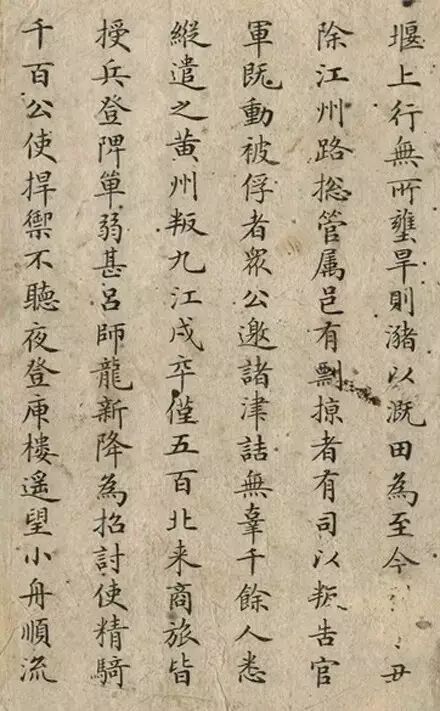 堰上行無所壅旱則瀦以溉田為至今毋
除江州路揔管属邑有剽掠者有司以叛告官
軍既動被俘者衆公邀諸津詰無辜千餘人悉
縱遣之黄州叛九江戍卒僅五百北来商旅皆
授兵登陴單弱甚吕師龍新降為招討使精騎
千百公使捍禦不聽夜登庾樓遥望小舟順流